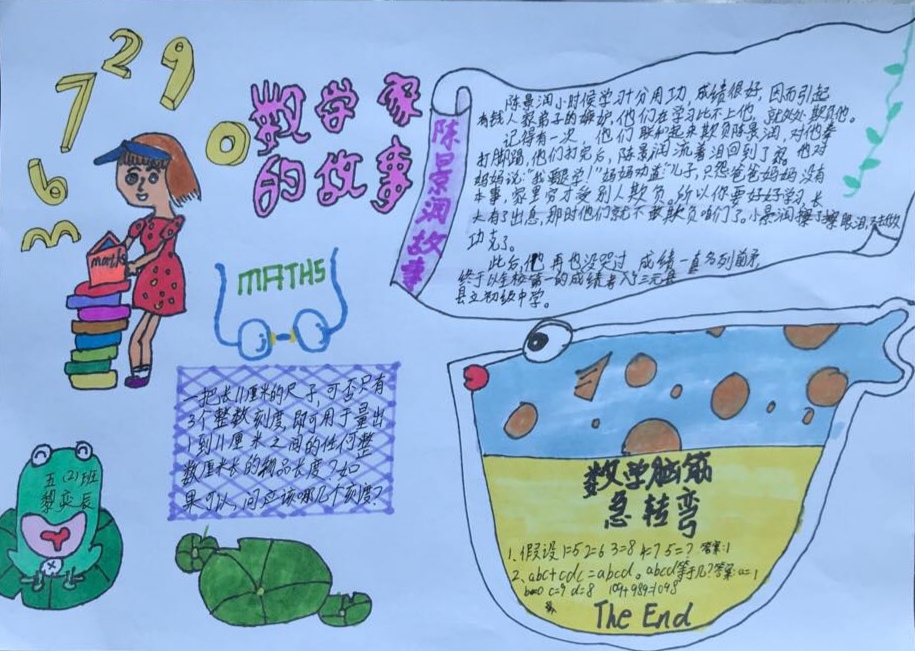 7 2 9
6
0
3
数学家
的故事
maths
MATHS
陈景润故事
陈景润小时候学习十分用功,成绩很好,因而引起
有钱人家弟子的嫉妒,他们在学习比不上他,就处处欺负他。
记得有一次,他们联和起来欺负陈景润,对他拳
打脚踢,他们打完后,陈景润流着泪回到了家。他对
妈妈说:"我要退学!"妈妈劝儿子,只怨爸爸妈妈没有
本事,家里穷才受别人欺负。所以你要好好学习,长
大有了出息,那时他们就不敢欺负咱们了。小景润擦了擦眼泪,又去做
功克了。
此后,他再也没哭过,成绩一直名列前矛,
终于以全校第一的成绩考入三元
县立初级中学。
一把长11厘米的尺子,可否只有
3个整数刻度,即可用于量出
1到11厘米之间的任何整
数厘米长的物品长度?如
果可以,问应该哪几个刻度?
五(2)班
黎奕辰
数学脑筋
急转弯
1.假设1=5 2=6 3=8 4=7 5=? 答案:1
2、abc+cdc=abcd。abcd等于几?答案:a=1
b=0 c=9 d=8 109+989=1098
The End